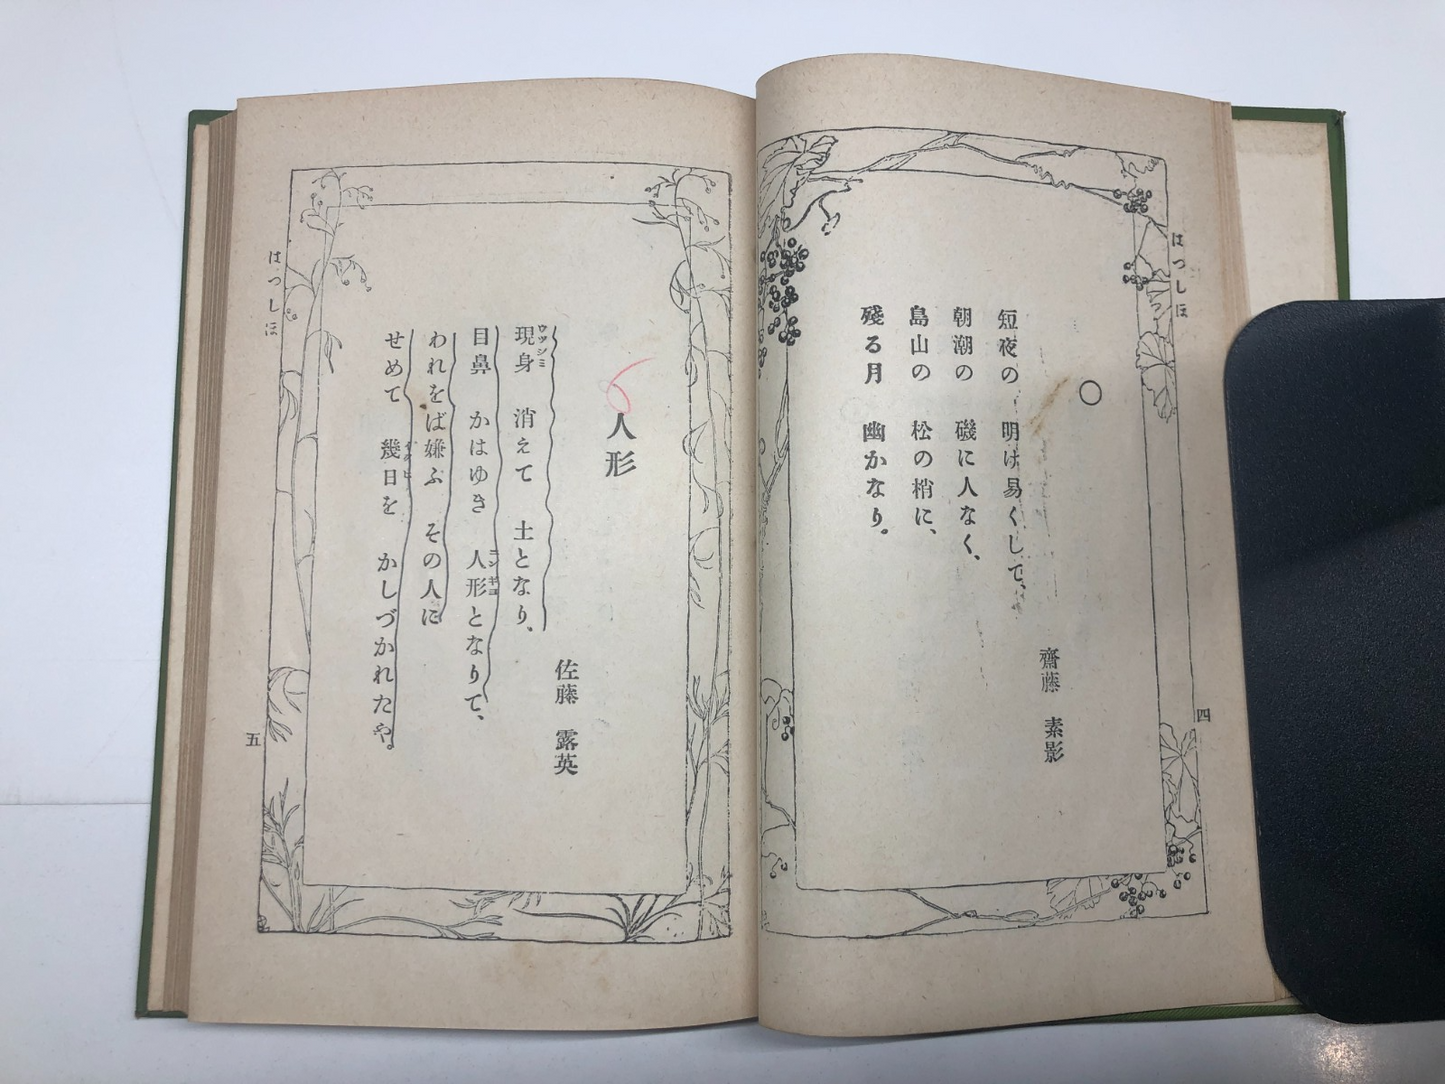 はつしほ
四
○
齋藤　素影
短夜の　明け易くして、
朝潮の　磯に人なく、
島山の　松の梢に、
殘る月　幽かなり。
人形
佐藤　露英
現身　消えて　土となり、
ウツシミ
目鼻　かはゆき　人形となりて、
ニンギヨ
われをば嫌ふ　その人に
せめて　幾日を　かしづかれたや。
はつしほ
五